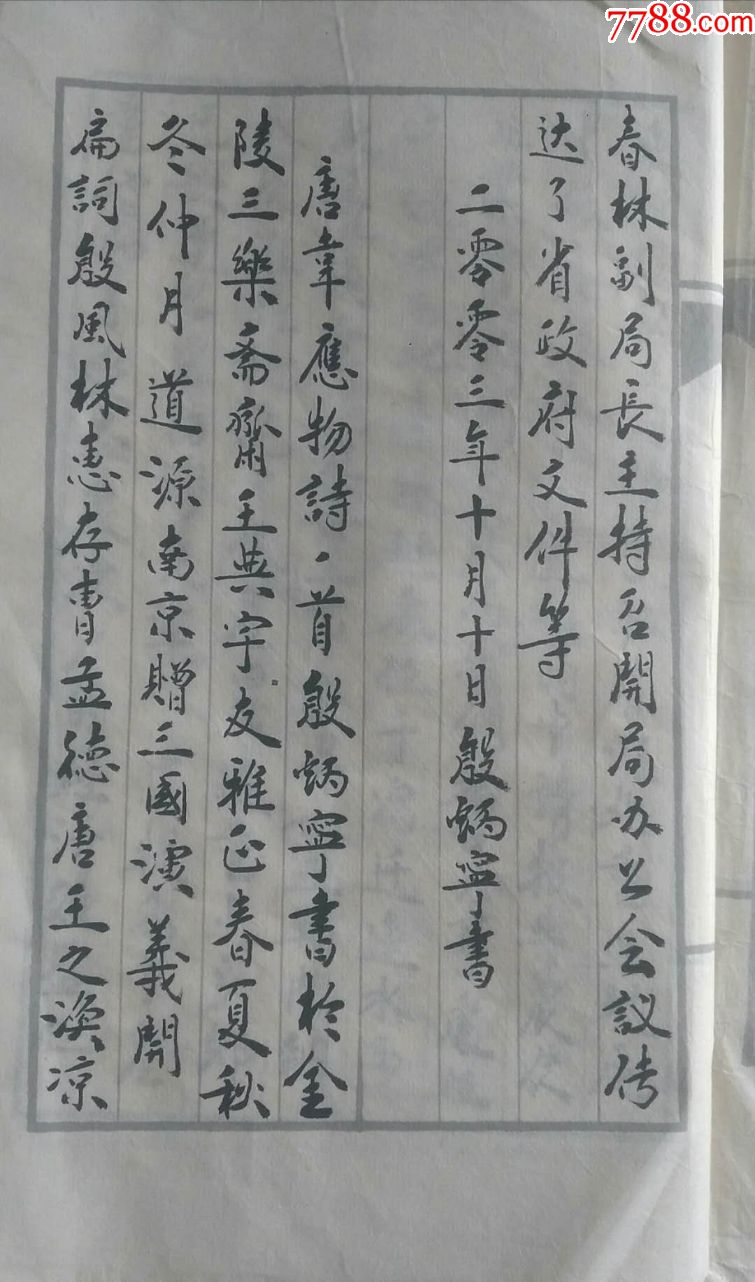 7788.com
春林副局長主持召開局办公会議传
达了省政府文件等
二零零三年十月十日殷炳寧書
唐韋應物詩一首殷炳寧書於金
陵三樂斋齋王典字友雅正春夏秋
冬仲月道源南京贈三國演義開
扁詞殷風林惠存曹孟德唐王之渙凉